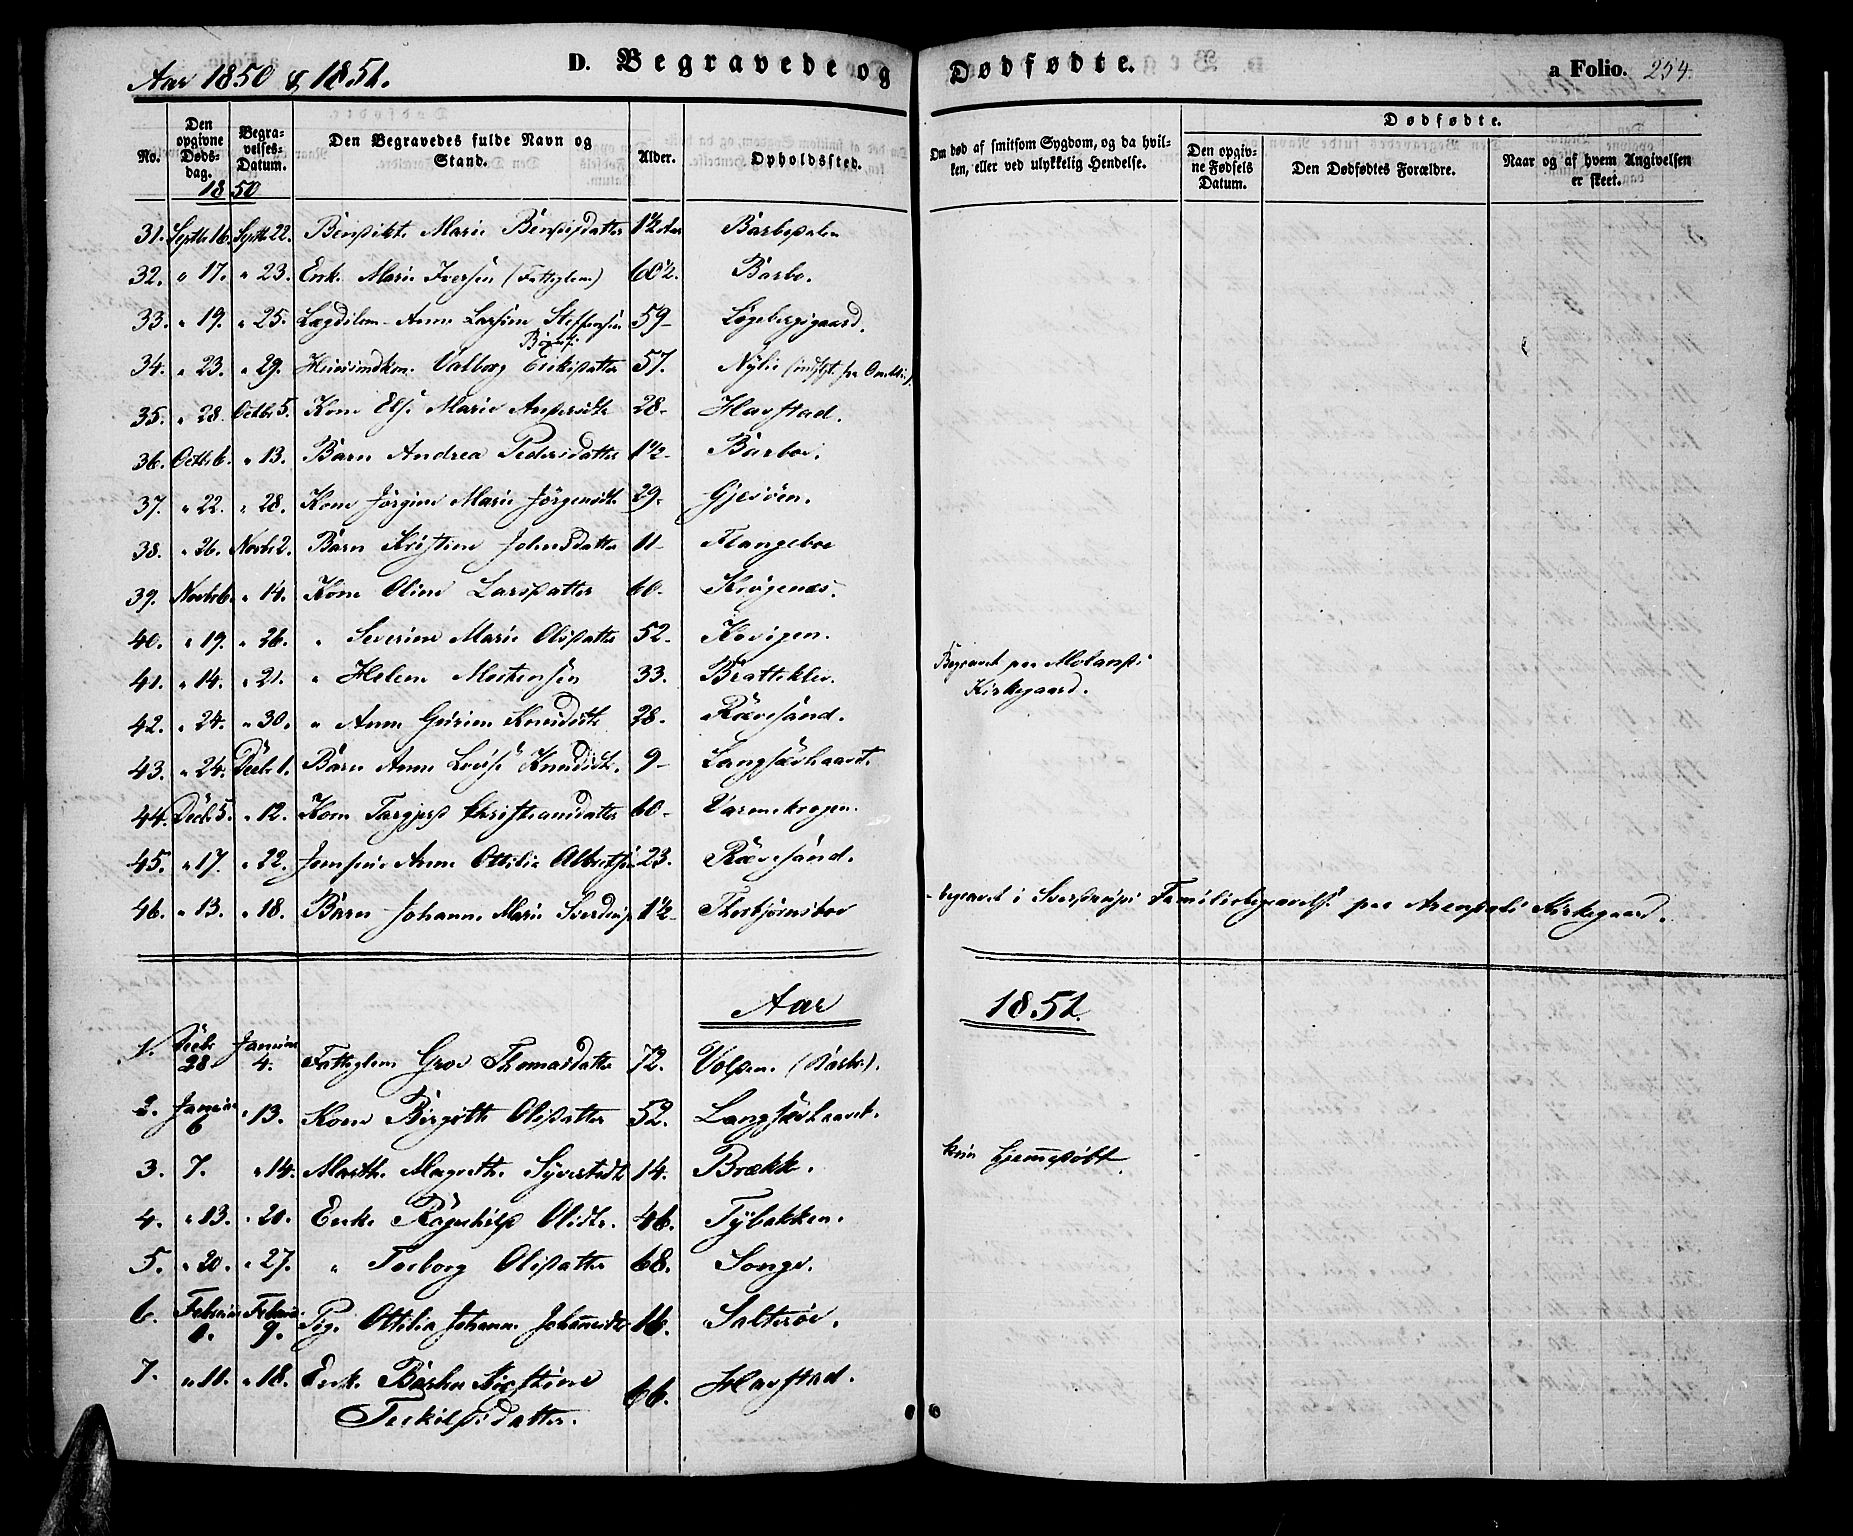 Aar 1850 & 1851.
D. Begravede og Dødfødte.
a Folio. 254.
No.
Den opgivne Døds-dag.
Begra-velses-Datum.
Den Begravedes fulde Navn og Stand.
Alder.
Opholdssted.
Om død af smitsom Sygdom, og da hvil-ken, eller ved ulykkelig Hendelse.
Dødfødte.
Den opgiv-ne Fødsels Datum.
Den Dødfødtes Forældre.
Naar og af hvem Angivelsen er skeet.
1850
31. Septbr 16. Septbr 22. Marie 1½ Aar
32. " 17. " 23. Enke Marie Iversen (Fattiglem) 60½. Barbo.
33. " 19. " 25. Lægdslem Anne Larsine Steffensen 59 - Løgebergsgaard.
34. " 23. " 29. Valborg Eriksdatter 57. Nylie
35. " 28. Octbr 5. Kone Else Marie Andersdtr 28 - Havstad.
36. Octbr 6. " 13. Barn Andrea Pedersdatter 1½ - Barboe.
37. " 22. " 28. Kone Jørgine Marie Jørgensdtr 29 - Gjesøen.
38. " 26. Novbr 2. Barn Kristine Johnsdatter 11 - Flangeboe
39. Novbr 6. " 14. Kone Oline Larsdatter 60. Krøgenæs.
40. " 19. " 26. " Severine Marie Olsdatter 52. Kovigen.
41. " 14. " 21. " Helene Mortensen 33. Bratteklev. Begravet paa Molands Kirkegaard.
42. " 24. " 30. " Anne Gurine Knudsdtr 28 - Rævesand.
43. " 24. Decbr 1. Barn Anne Lovise Knudsdtr. 9 - Langsævhaavet.
44. Decbr 5. " 12. Kone Targjerd Christiansdatter 60 - Varmekrogen.
45. " 17. " 22. Anne Ottilia Albretsen 23. Rævesand.
46. " 13. " 18. Barn Johanne Marie Sverdrup 1½ - Thorbjørnsboe Begravet i Sverdrups Familiebegravelse paa Arendals Kirkegaard.
Aar 1851.
1. Decbr 28 Januar 4. Fattiglem Groe Thomasdatter 72. Volden (Barbo).
2. Januar 6 " 13. Kone Birgitte Olsdatter 52. Langsævhaavet.
3. 7. " 14. Marthe Magrethe Syverstdtr 14. Brække. kun hjemmedøbt.
4. " 13. " 20. Enke Ragnhild Olsdtr. 46. Tybakken.
5. " 20. " 27. " Torborg Olsdatter 68. Songe.
6. Februar 1. Februar 9. Pige Ottilia Johanne Johannesdtr 16. Salterøe.
7. " 11. " 18. Enke Kirstine Terkilsdatter. 66. Havstad.